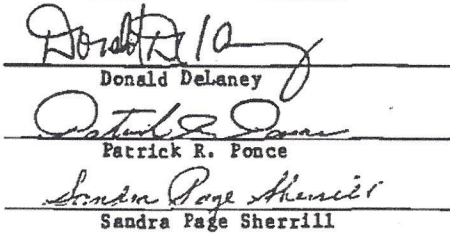 Donald DeLaney
Donald DeLaney
Patrick R. Ponce
Patrick R. Ponce
Sandra Page Sherrill
Sandra Page Sherrill